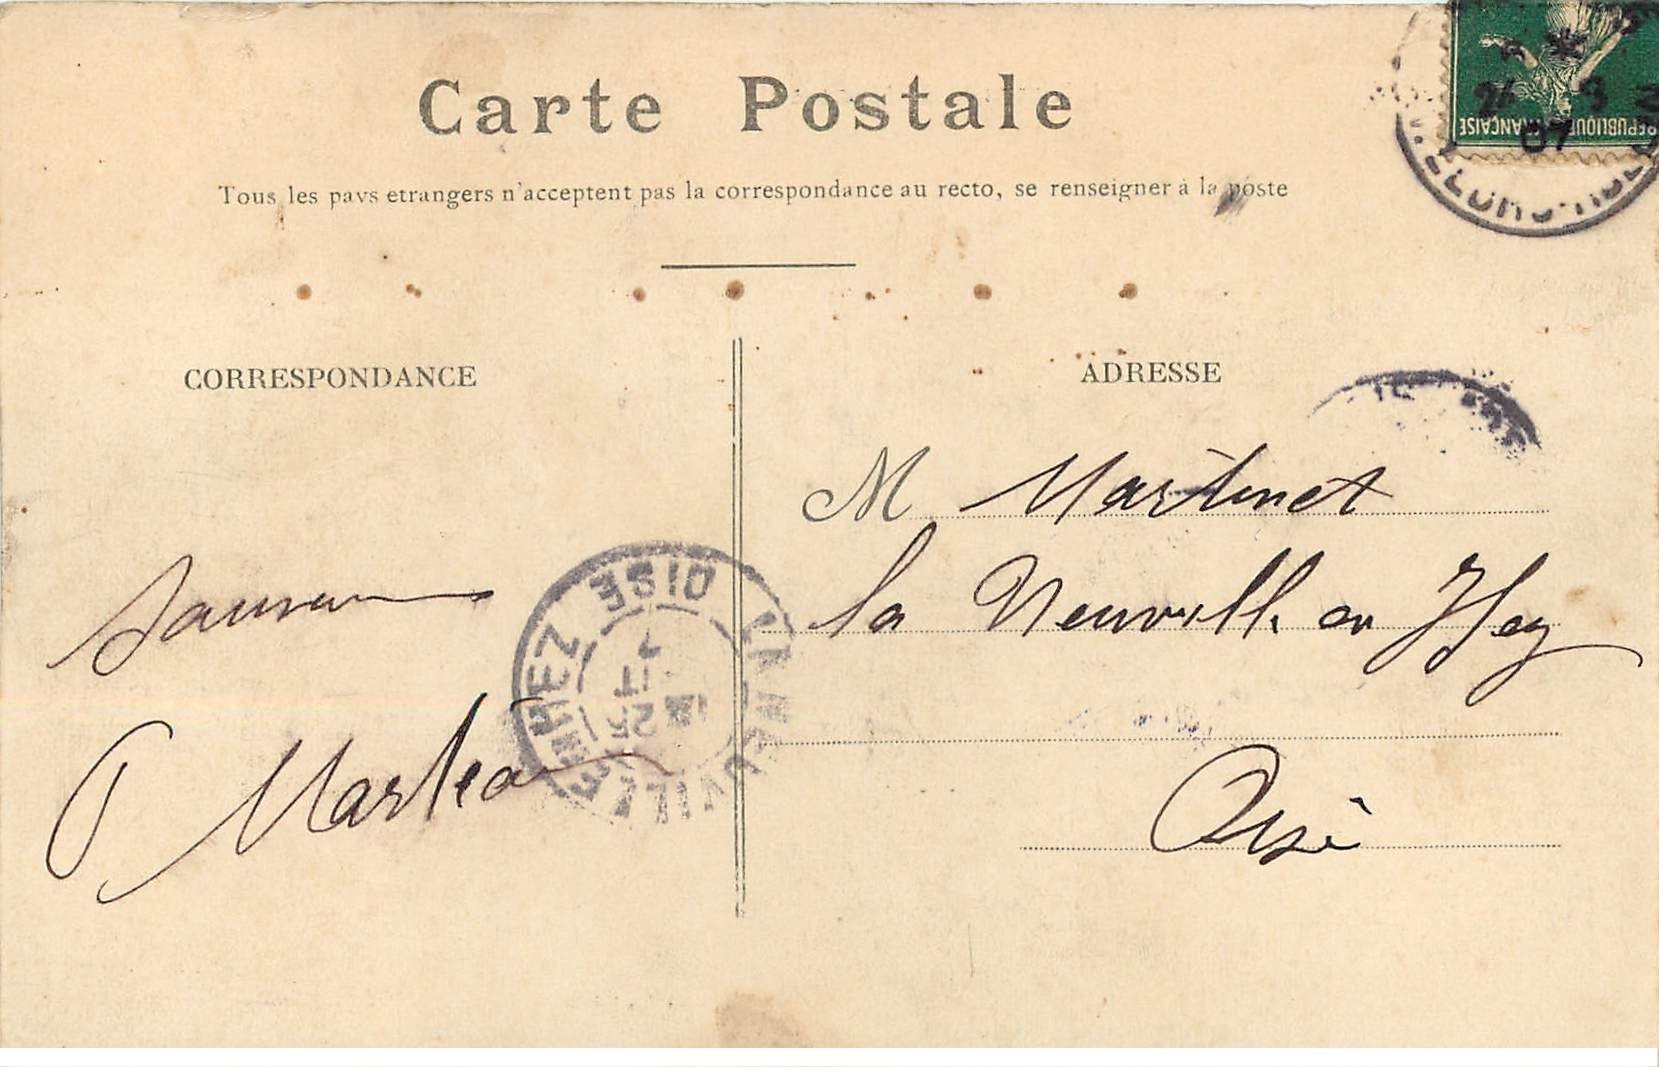 Carte Postale
Tous les pays etrangers n'acceptent pas la correspondance au recto, se renseigner à la poste
REPUBLIQUE FRANÇAISE
26 3
07
CORRESPONDANCE
ADRESSE
M Martinet
la Neuville en Hez
Oise
OISE
LA NEUVILLE EN HEZ
25